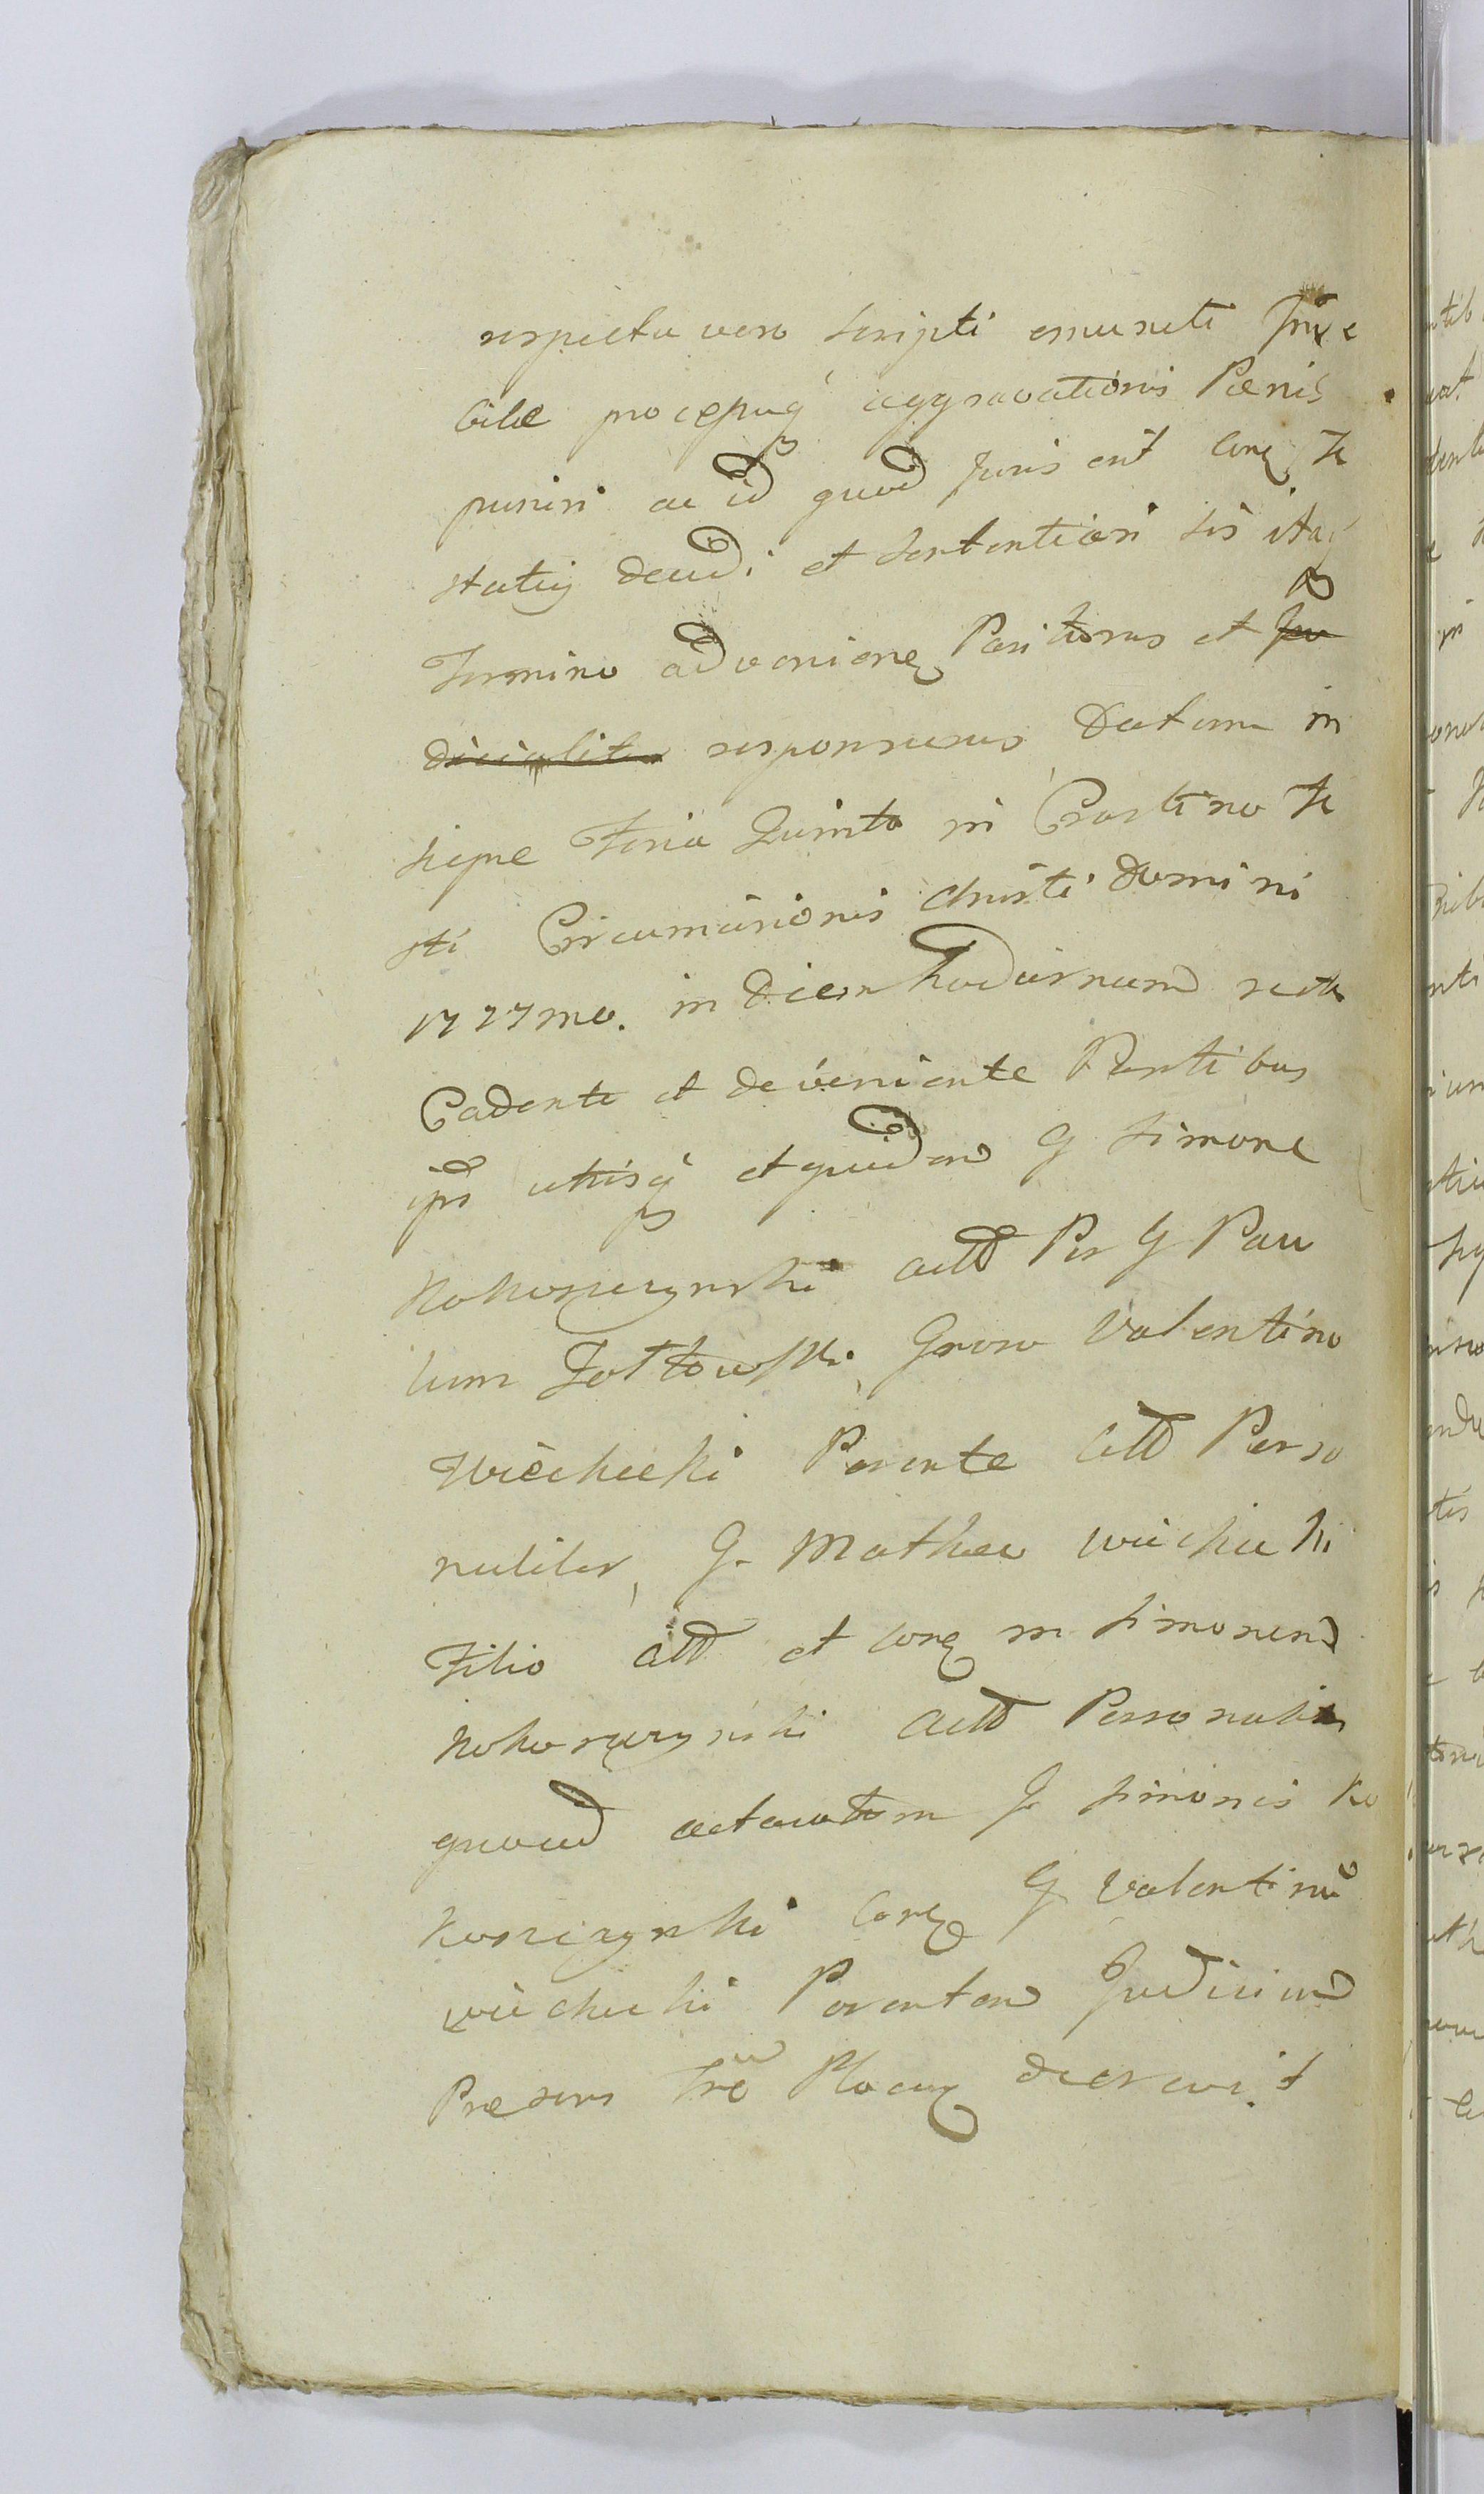 respectu vero scripti emuneti
processusq aggravationis Pœnis
puniri ac id quod Juris erit Conq te
statiq decidi et sententiari sis itaq
Termino adveniene Pariturus et Ju
dicialiter responsurus Datum in
Sieprc Feria Quinta in Crastino Fe
sti Circumcisionis Christi Domini
1727mo. in diem hodiernum recte
Cadente et deveniente Partibus
ips utrisq et quidem G Simone
Kokoszczynski actt Per G Pau
lum Zołtowski, Groso Valentino
Wiecheeki Parente citt Perso
naliter, G. Matheo Wiecheeki
Filio citt et conq in Simonem
Kokoszczynski actt Personaliter
quoad actoratum G Simonis Ko
koszczynski Conq G Valentinu
Wiecheeki Parentem Judicium
Præsens Tre Placuq decrevit